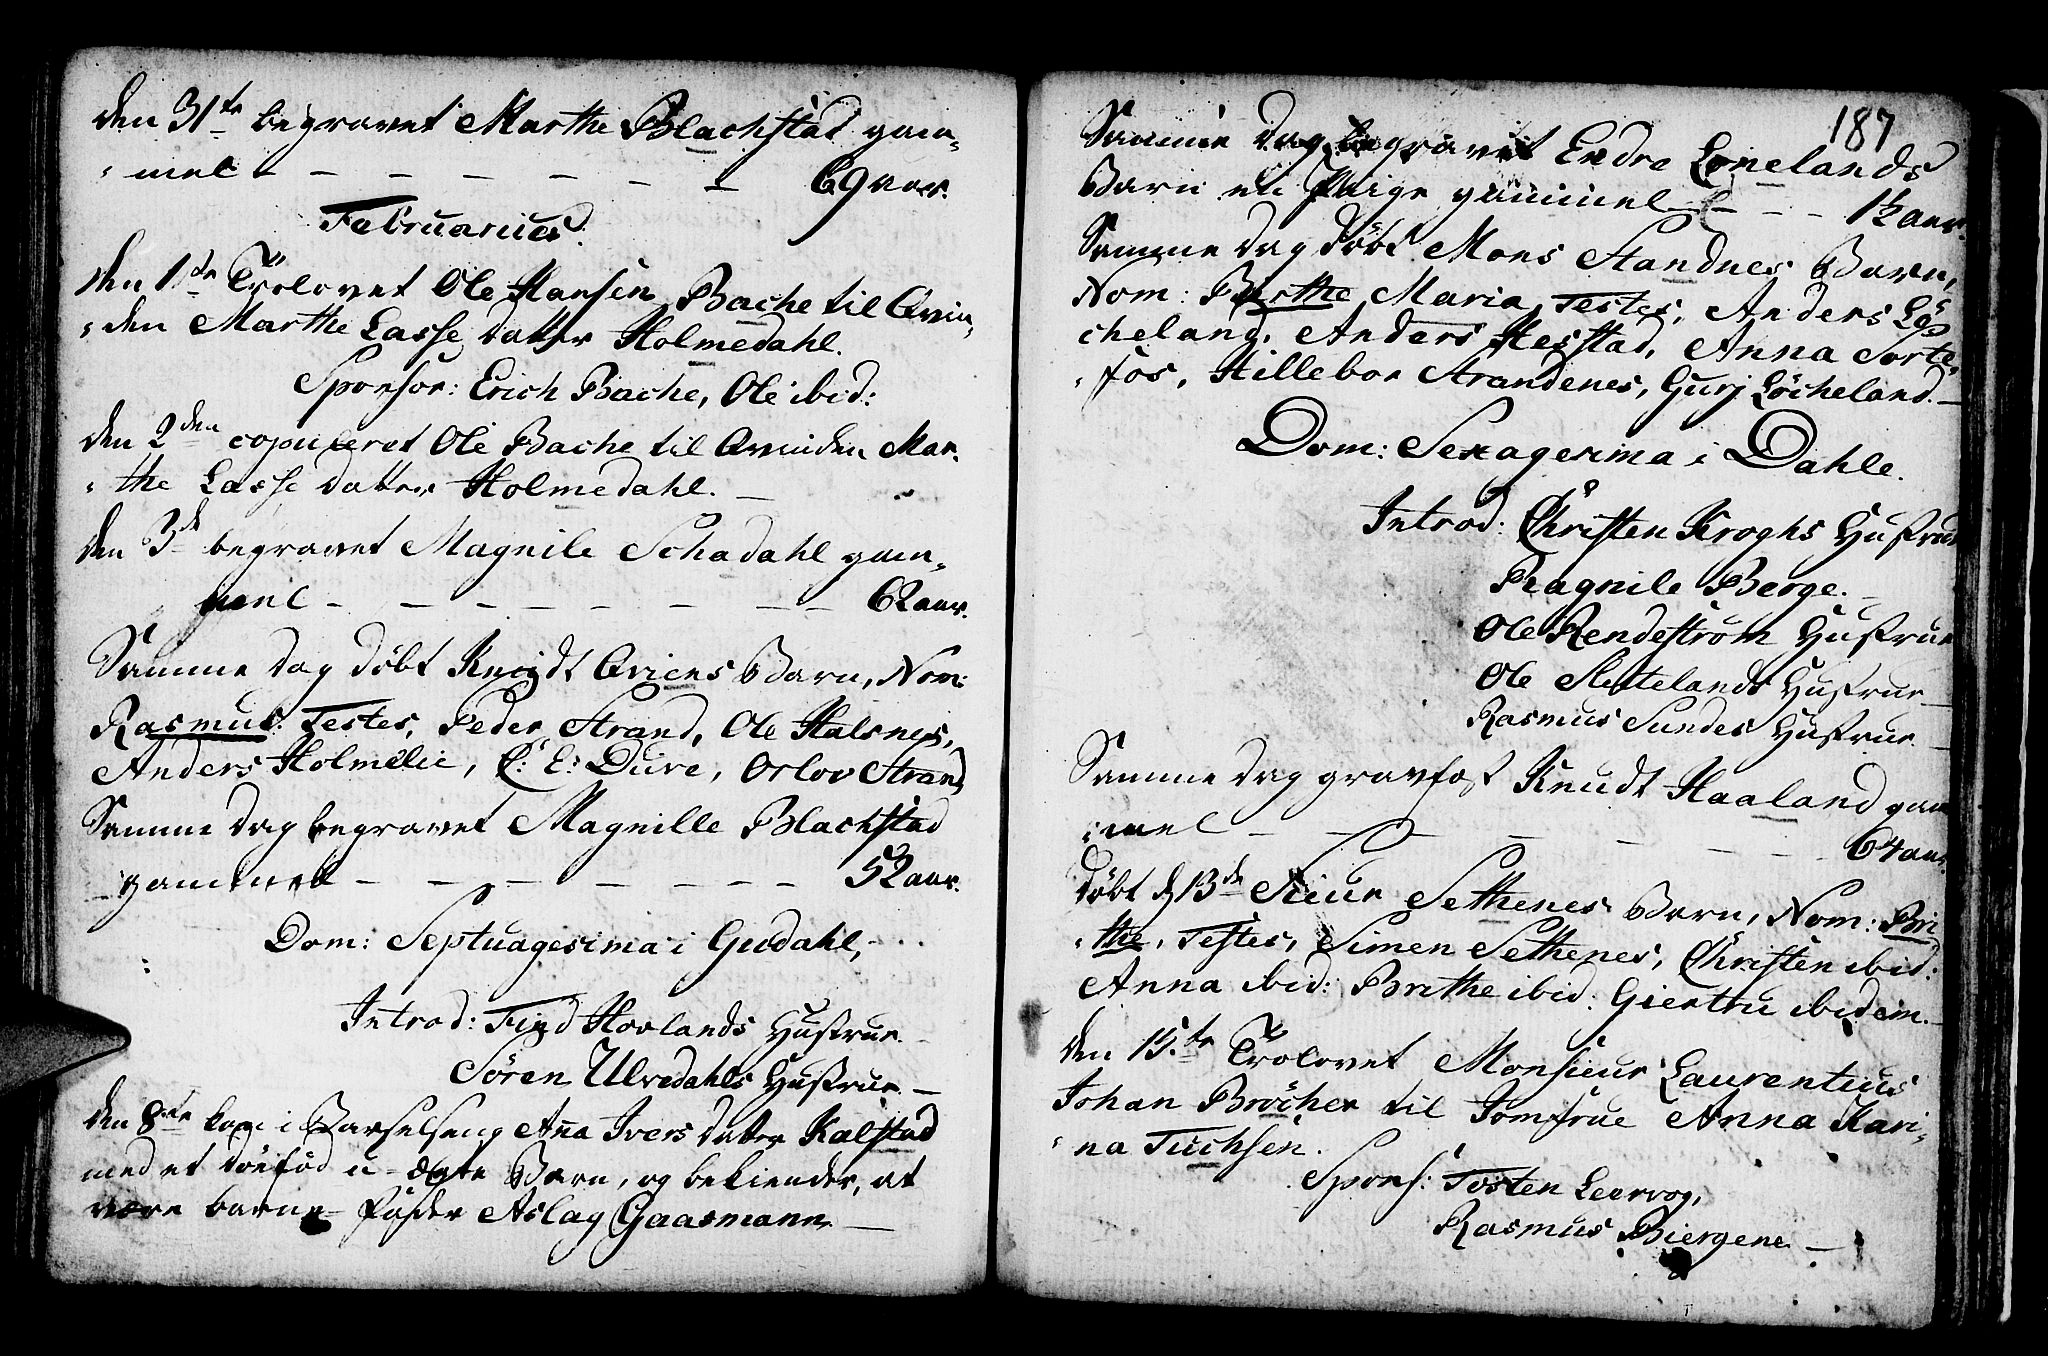 den 31te begravet Marthe Blachstad gam„
„mel — — — — — — — 69 aar.
Februarius.
den 1te Trolovet Ole Hansen Bache til Qvin„
„den Marthe Lasse datter Holmedahl.
Sponsor: Erich Bache, Ole ibid:
den 2den copuleret Ole Bache til Qvinden Mar„
„the Lasse datter Holmedahl. —
den 3de begravet Magnile Schadahl gam„
mel — — — — — — — — 62 aar.
Samme dag döbt Knudt Qviens Barn, Nom:
Rasmus: Testes, Peder Strand, Ole Halsnes,
Anders Holmelie, C: E: Dure, Orlov Strand
Samme dag begravet Magnille Blachstad
gammel — — — — — — — 52 aar.
Dom: Septuagesima i Gudahl,
Introd: Find Hovlands Hustrue.
Sören Ulvedahls Hustrue —
den 8de kom i Barselseng Aña Ivers datter Kalstad
med et döefød u-ægte Barn, og bekiender, at
være barne-fader Aslag Gaasmann —
187
Samme dag begravet Endre Lonelands
Barn en Pige gammel — — — 1½ aar.
Samme dag döbt Mons Standnes Barn,
Nom: Berthe Maria, Testes, Anders Lö„
cheland, Anders Hestad, Anna Sorte„
„fos, Hillebor Strandenes, Gurj Löcheland. —
Dom: Sexagesima i Dahle.
Introd: Christen Kroghs Hustrue
Ragnile Berge. —
Ole Rendeström Hustrue
Ole Slettelands Hustrue —
Rasmus Sundes Hustrue. —
Samme dag gravfæst Knudt Haaland gam
„mel — — — — — — — 64 aar.
döbt d 13de Siur Sethenes Barn, Nom: Bri„
„the, Testes, Simen Sethenes, Christen ibid:
Anna ibid: Brithe ibid: Giertru ibidem. —
den 15.te Trolovet Monsieur Laurentius
Johan Bröcher til Jomfrue Anna Kari„
„na Tuchsen.
Spons: Tosten Leervog,
Rasmus Biergene —